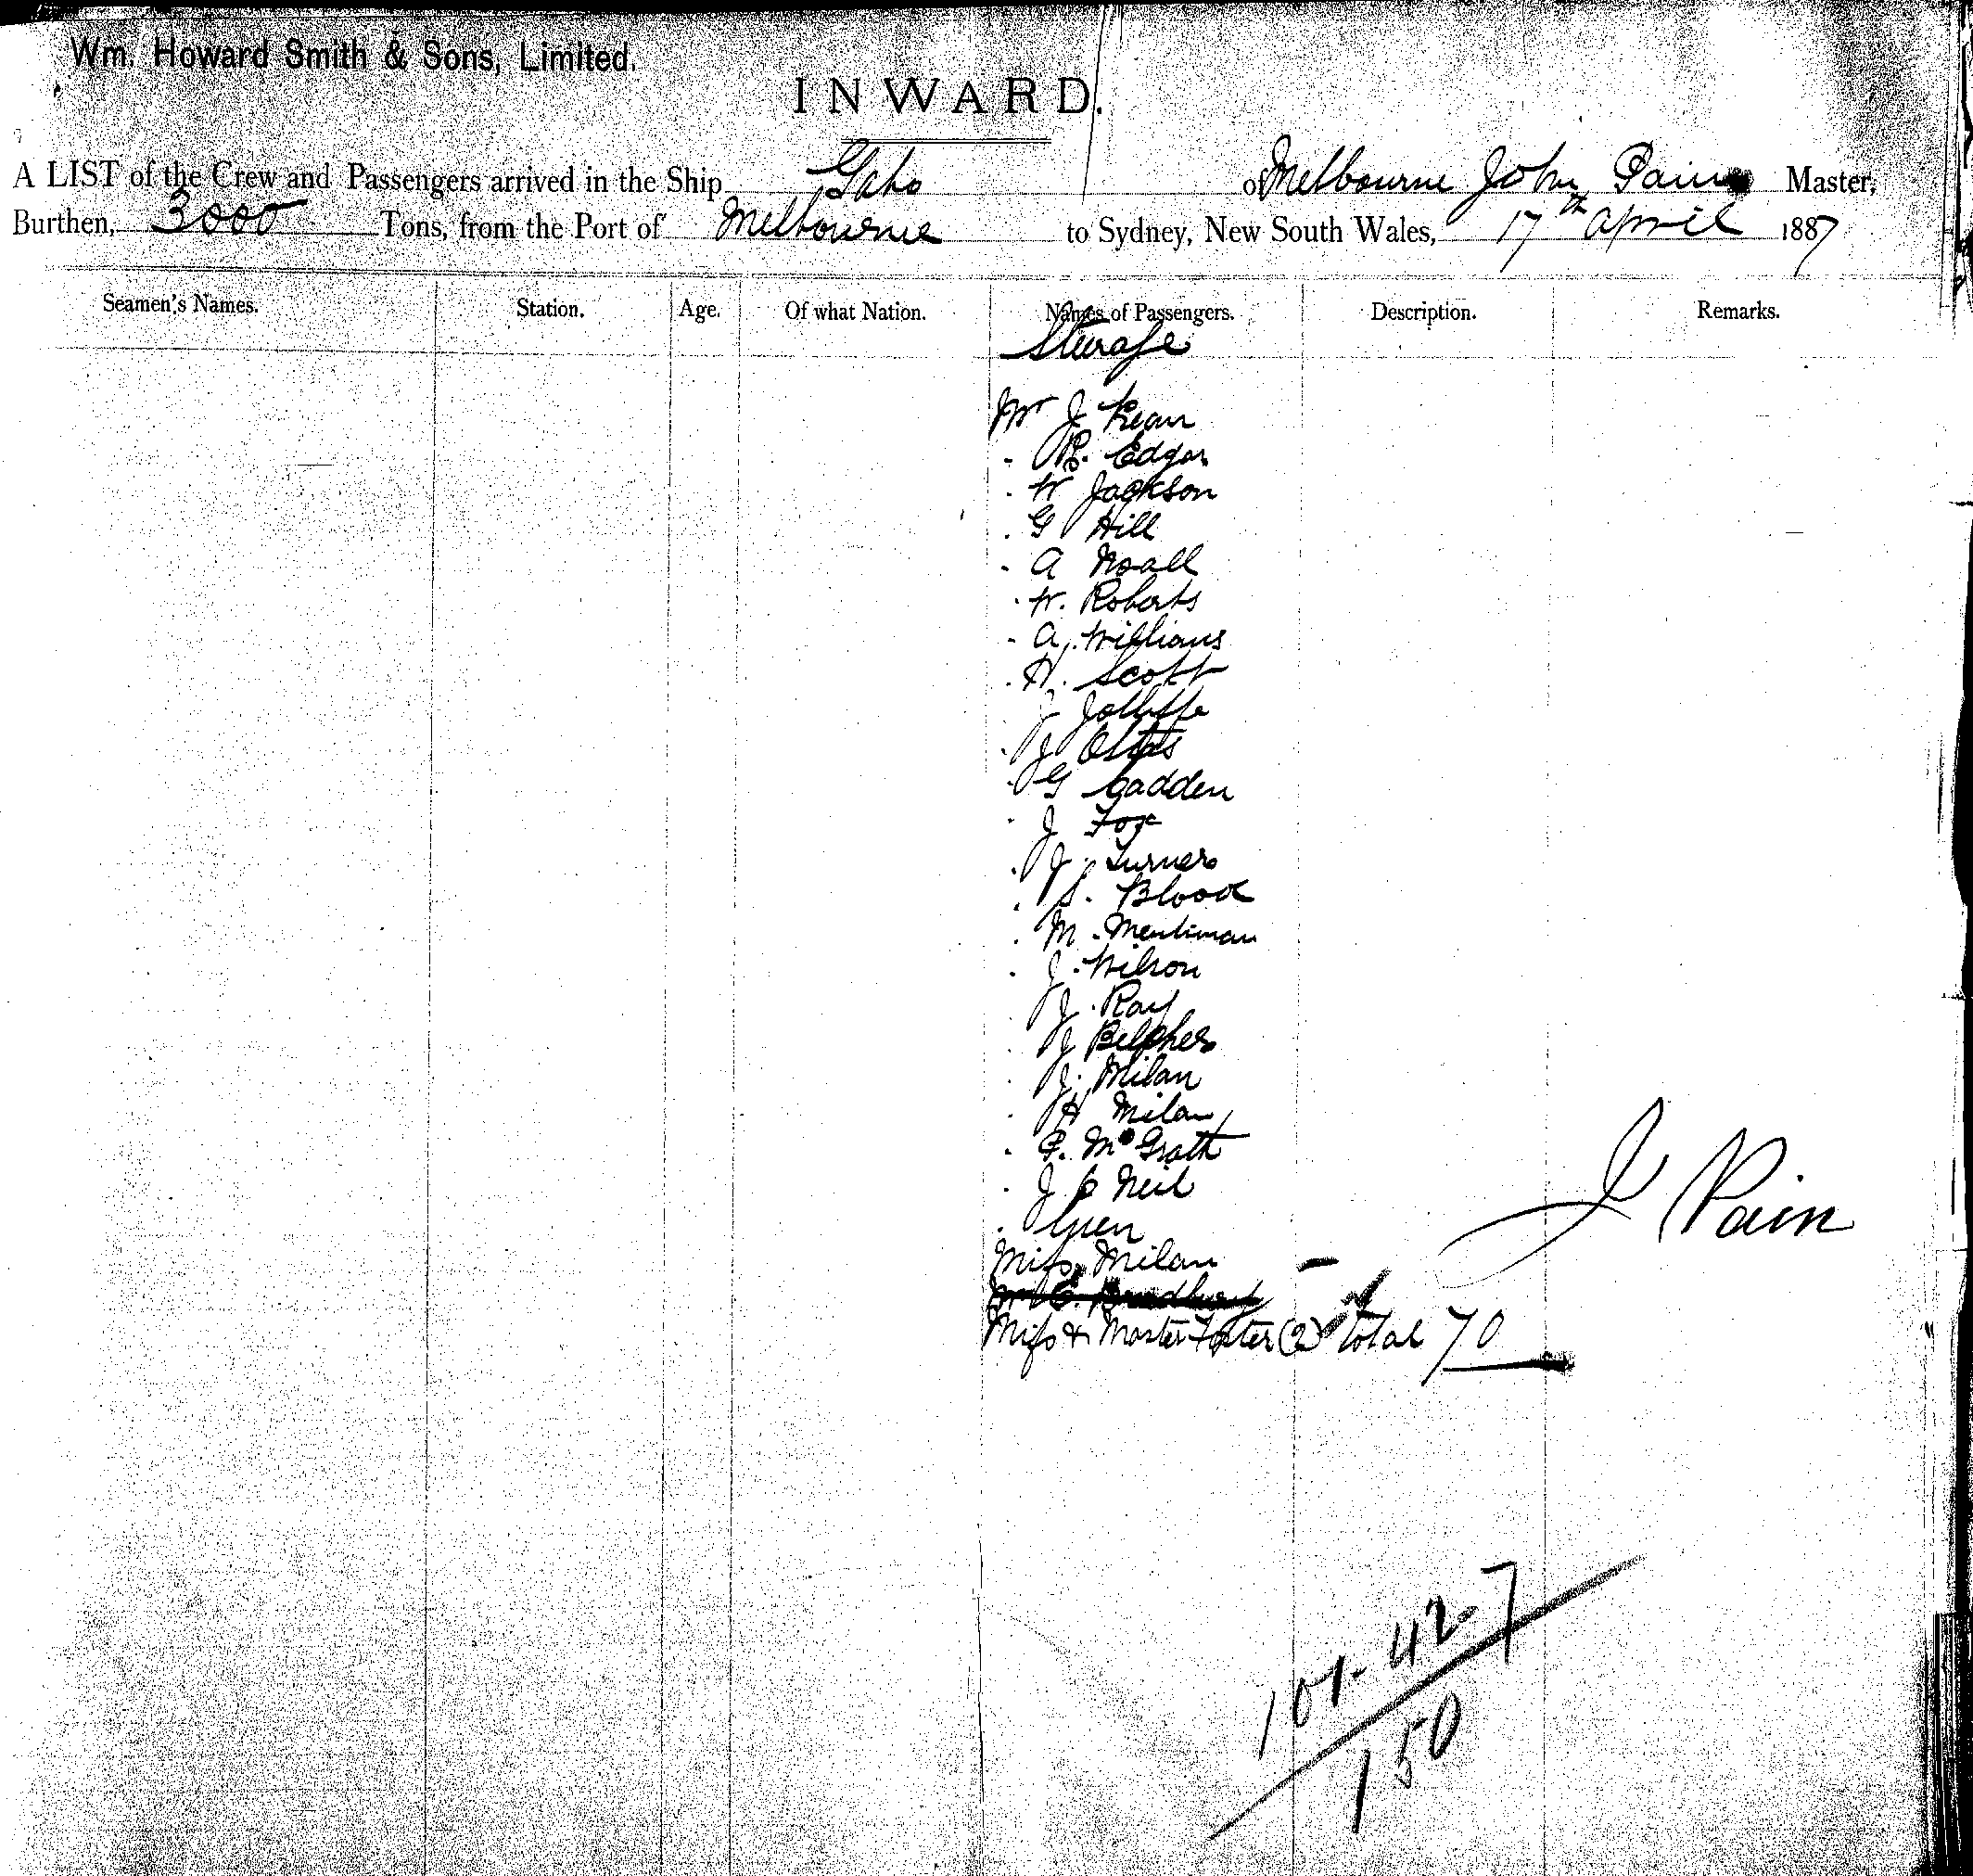 Wm. Howard Smith & Sons, Limited.
INWARD.
A LIST of the Crew and Passengers arrived in the Ship Gabo of Melbourne John Pain Master,
Burthen, 3000 Tons, from the Port of Melbourne to Sydney, New South Wales, 17th April 1887
Seamen's Names. Station. Age. Of what Nation. Names of Passengers. Description. Remarks.
Steerage
Mr J Kean
- R. Edgar
. W Jackson
. G Hill
- A Noall
. W. Roberts
- A. Williams
. H. Scott
J Jolliffe
. J
. G Gadden
. J Fox
. J. Turner
. S. Blood
. M.
. J. Wilson
J. Ray
. J Belcher
. J. Milan
. H Milan
. P. McGrath
. J C Neil
. Green
Miss Milan
Miss & Master Foster (2) total 70
J Pain
107-42-7
150